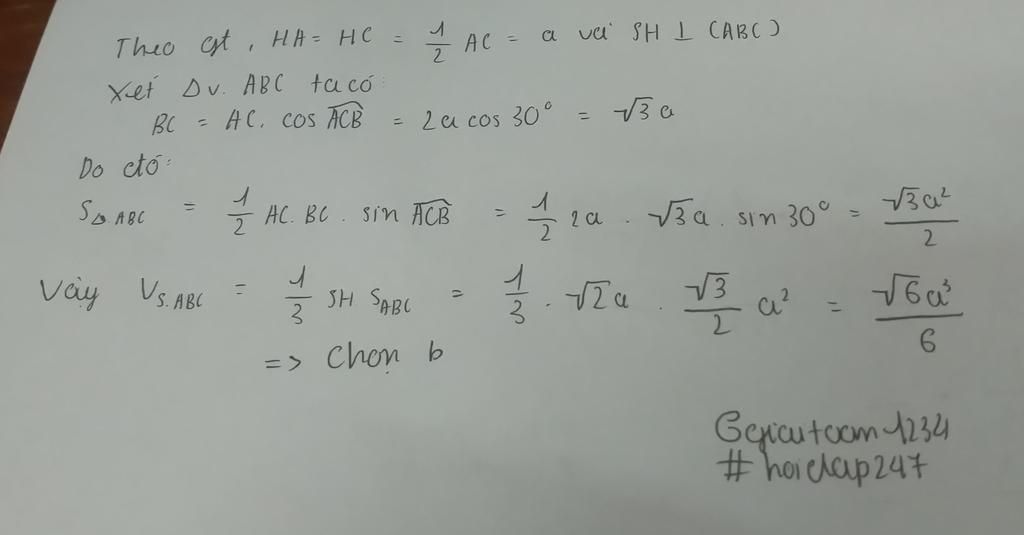 Theo gt, HA = HC = 1/2 AC = a với SH ⊥ (ABC)
Xét Δv. ABC ta có:
BC = AC. cos ACB = 2a cos 30° = √3 a
Do đó:
SΔABC = 1/2 AC. BC. sin ACB = 1/2 2a . √3a . sin 30° = √3a²/2
Vậy VS.ABC = 1/3 SH SABC = 1/3 . √2a . √3/2 a² = √6a³/6
=> Chọn b
#hoidap247